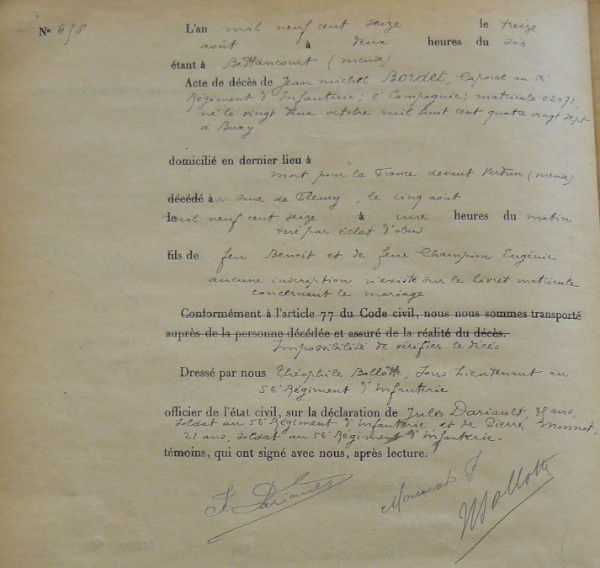 N° 678 L'an mil neuf cent seize le treize
août à deux heures du soir
étant à Bettancourt (meuse)
Acte de décès de Jean michel Bordet, Caporal au 56
Régiment d'Infanterie; 6 Compagnie; matricule 02071,
né le vingt deux octobre mil huit cent quatre vingt sept
à Buxy
domicilié en dernier lieu à
mort pour la France devant Verdun (meuse)
décédé à sud de Fleury, le cinq août
le mil neuf cent seize à une heures du matin
tué par éclat d'obus
fils de feu Benoit et de feue Champion Eugénie
aucune inscription n'existe sur le livret matricule
concernant le mariage
Conformément à l'article 77 du Code civil, nous nous sommes transporté
auprès de la personne décédée et assuré de la réalité du décès.
Impossibilité de vérifier le décès
Dressé par nous Théophile Bollotte, Sous Lieutenant au
56 Régiment d'Infanterie
officier de l'état civil, sur la déclaration de Jules Dariault, ans,
soldat au 56 Régiment d'Infanterie et de Pierre Monnot,
21 ans, soldat au 56 Régiment d'Infanterie.
témoins, qui ont signé avec nous, après lecture.
J. Dariault Monnot P Bollotte